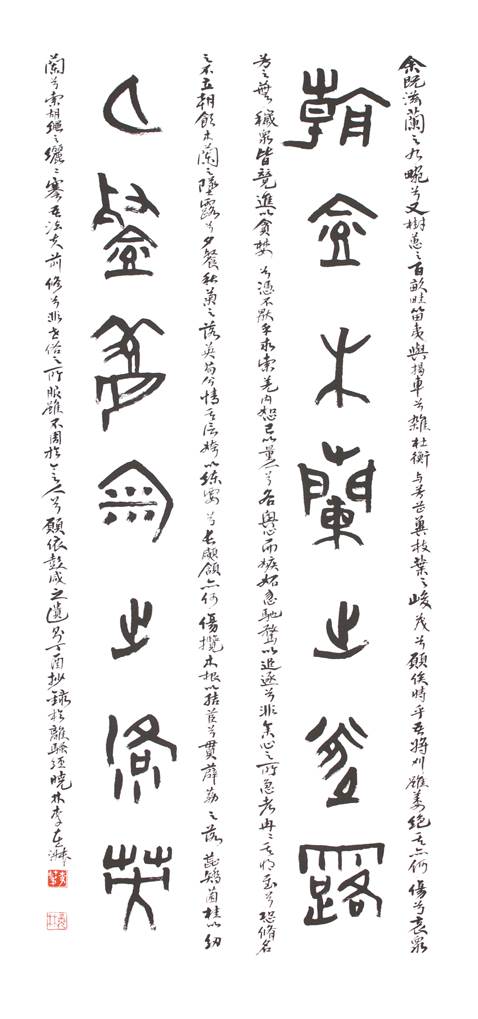 余既滋蘭之九畹兮又樹蕙之百畝畦留夷與揭車兮雜杜衡与芳芷冀枝葉之峻茂兮願俟時乎吾將刈雖萎絕其亦何傷兮哀衆
朝飲木蘭之墜露
芳之蕪穢衆皆競進以貪婪兮憑不猒乎求索羌內恕己以量人兮各興心而嫉妬忽馳騖以追逐兮非余心之所急老冉冉其將至兮恐脩名
之不立朝飲木蘭之墜露兮夕餐秋菊之落英苟余情其信姱以練要兮長顑頷亦何傷攬木根以結茝兮貫薜荔之落蕊矯菌桂以紉
夕餐秋菊之落英
蘭兮索胡繩之纚纚謇吾法夫前修兮非世俗之所服雖不周於今之人兮願依彭咸之遺則丁酉抄錄於離騷經曉林李